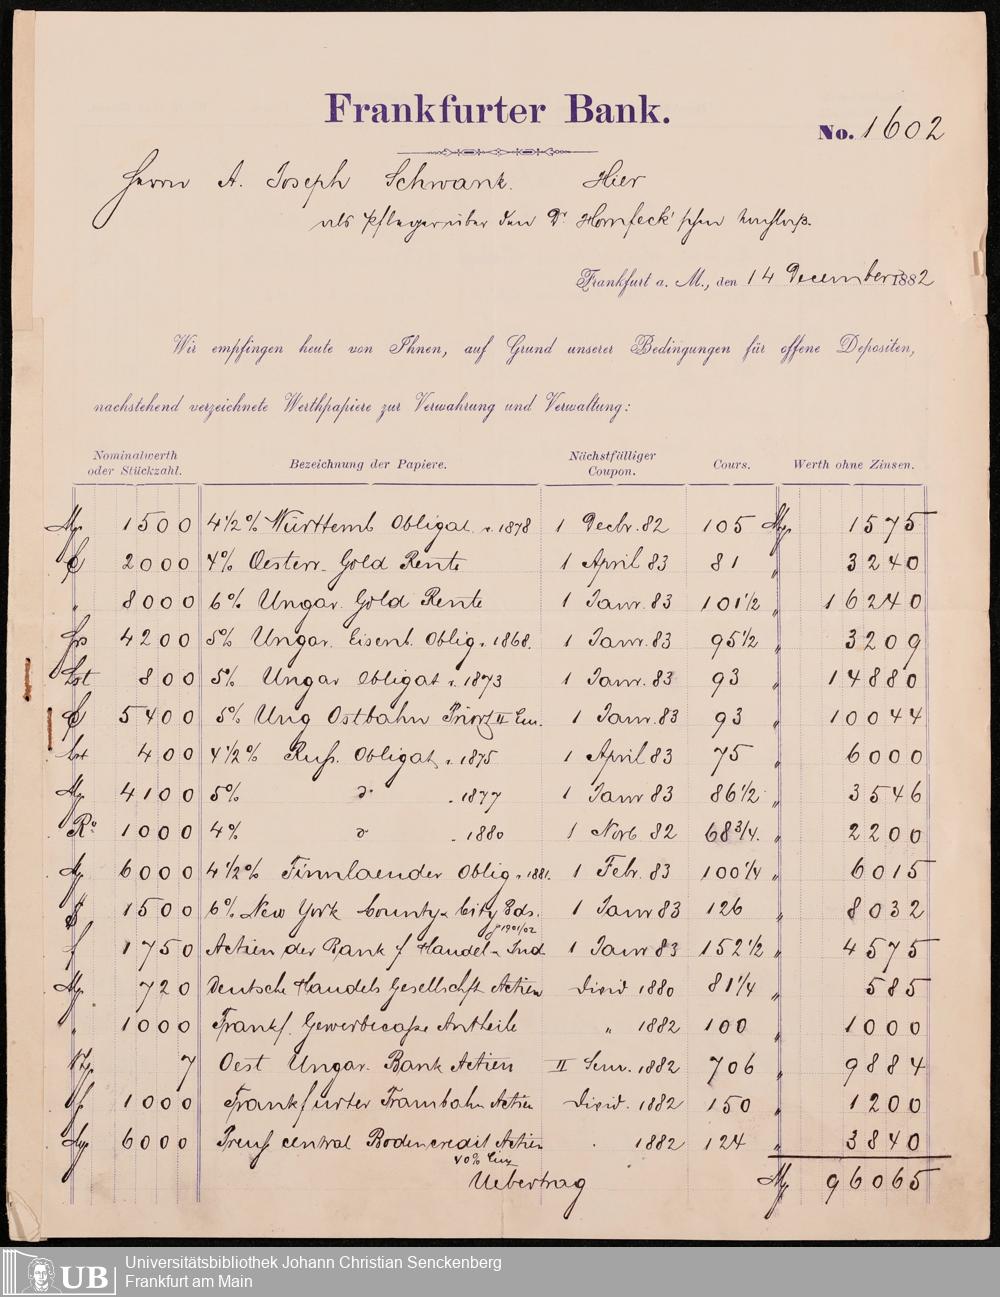 Frankfurter Bank.
No. 1602
Herrn A. Joseph Schwank. Hier
als Pfleger über den Dr Hornfeck'schen Nachlaß.
Frankfurt a. M., den 14 December 1882
Wir empfingen heute von Ihnen, auf Grund unserer Bedingungen für offene Depositen,
nachstehend verzeichnete Werthpapiere zur Verwahrung und Verwaltung:
Nominalwerth oder Stückzahl. Bezeichnung der Papiere. Nächstfälliger Coupon. Cours. Werth ohne Zinsen.
M 1500 4 1/2 % Württemb Obligat v. 1878 1 Decbr. 82 105 M 1575
2000 4% Oesterr. Gold Rente 1 April 83 81 " 3240
" 8000 6% Ungar. Gold Rente 1 Janr. 83 101 1/2 " 16240
frs 4200 5% Ungar. Eisenb. Oblig v. 1868. 1 Janr. 83 95 1/2 " 3209
Lst 800 5% Ungar Obligat v. 1873 1 Janr. 83 93 " 14880
5400 5% Ung Ostbahn Prior II Em. 1 Janr. 83 93 " 10044
Lst 400 4 1/2 % Russ. Obligat v. 1875 1 April 83 75 " 6000
M 4100 5% do . 1877 1 Janr 83 86 1/2 " 3546
Ro 1000 4% do . 1880 1 Novb 82 68 3/4. " 2200
M 6000 4 1/2 % Finnlaender Oblig v. 1881. 1 Febr. 83 100 1/4 " 6015
$ 1500 6% New York County & City Bds. 1 Janr 83 126 " 8032
p 1901/02
f 1750 Actien der Bank f Handel u Ind 1 Janr 83 152 1/2 " 4575
M 720 Deutsche Handels Gesellschft Actien Divid 1880 81 1/4 " 585
" 1000 Frankf. Gewerbecasse Antheile " 1882 100 " 1000
Stp 7 Oest Ungar. Bank Actien II Sem. 1882 706 " 9884
f 1000 Frankfurter Trambahn Actien Divid. 1882 150 " 1200
M 6000 Preuss central Bodencredit Actien . 1882 124 " 3840
40% Einz
Uebertrag M 96065
UB
Universitätsbibliothek Johann Christian Senckenberg
Frankfurt am Main